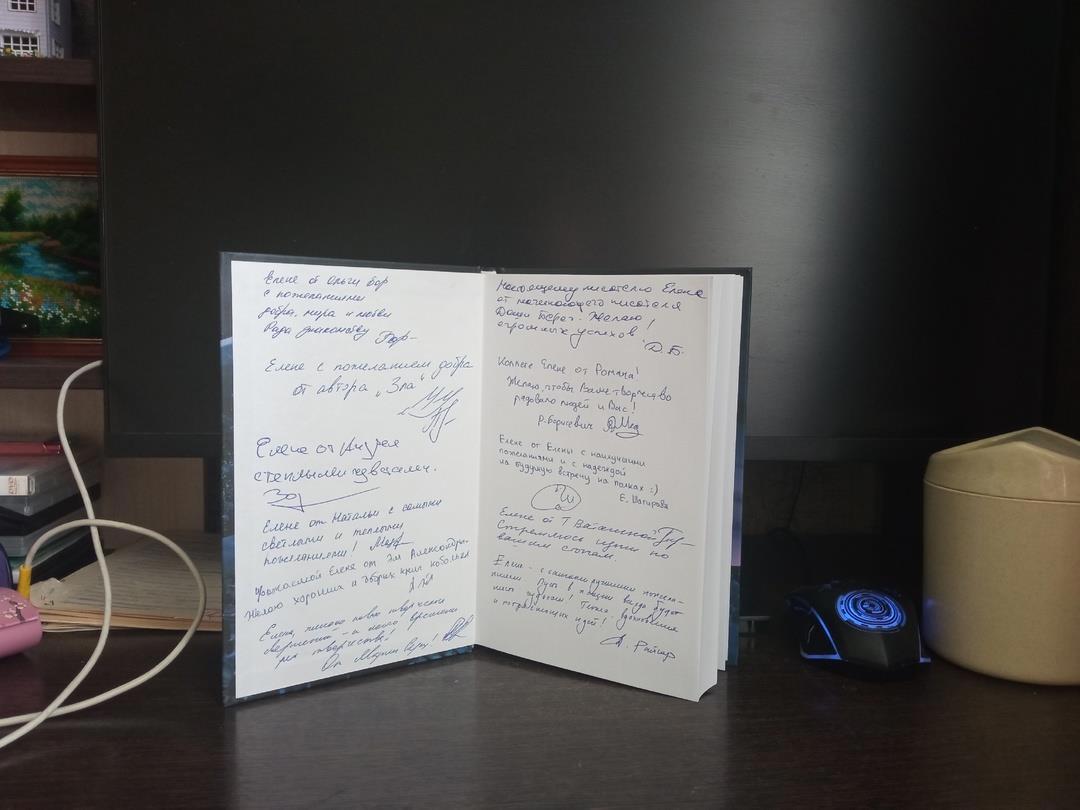 Елене от Ольги Бор
с пожеланиями
добра, мира и любви
Рада знакомству Бор
Елене с пожеланием добра
от автора „Зла“
Елене от Андрея
с тёплыми
Елене от Натальи с самыми
светлыми и тёплыми
пожеланиями!
Уважаемой Елене от Эл Александра
Желаю хороших и добрых книг
Елена,
свершений - и много времени
для творчества!
От
Настоящему писателю Елене
от начинающего писателя
Даши Берег. Желаю
огромных успехов!
Д.Б.
Коллеге Елене от Романа!
Желаю, чтобы Ваше творчество
радовало людей и Вас!
Р. Борисевич
Елене от Елены с наилучшими
пожеланиями и с надеждой
на будущую встречу на полках :)
Е. Шагирова
Елене от Т
Стремлюсь идти по
вашим стопам.
Елена - с самыми лучшими пожела-
ниями! Пусть в жизни всегда будет
место чудесам! Тепла, вдохновения
и потрясающих идей!
DVD